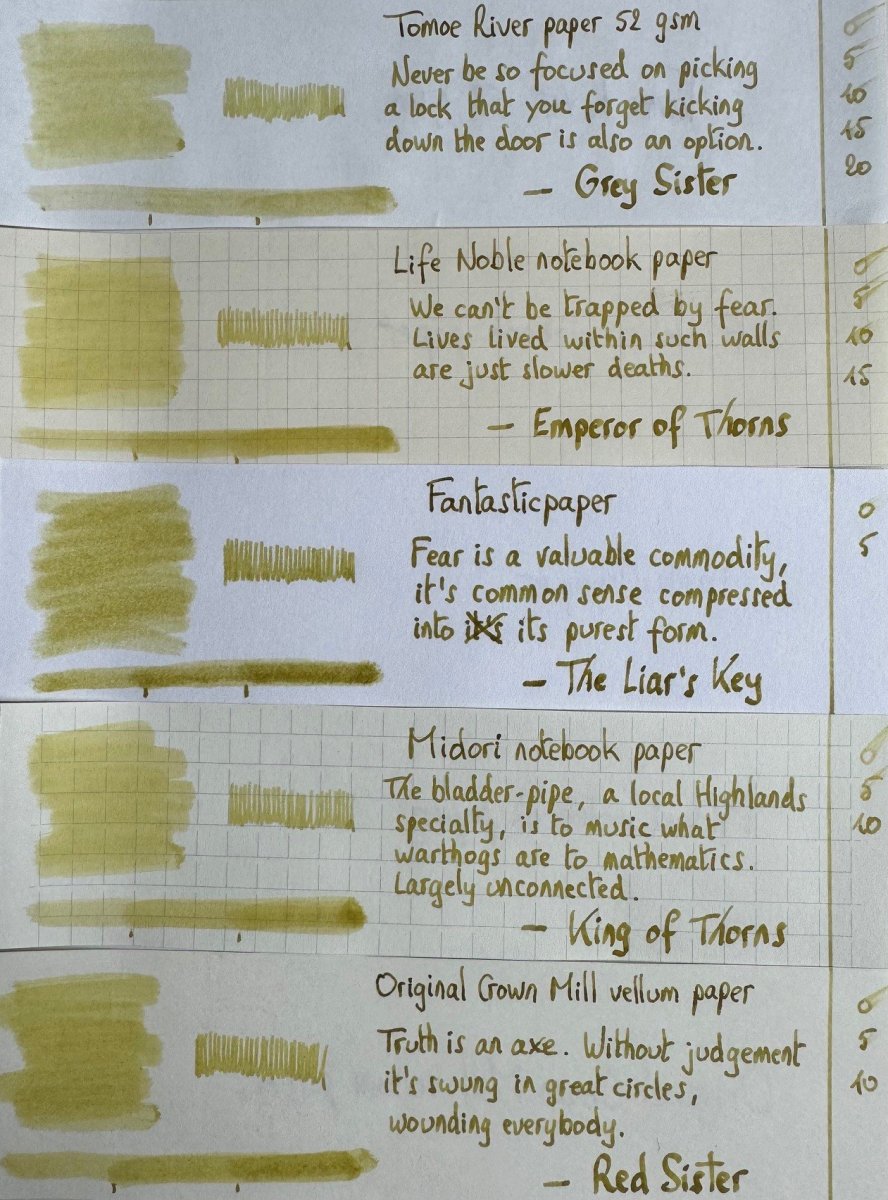 Tomoe River paper 52 gsm
Never be so focused on picking
a lock that you forget kicking
down the door is also an option.
— Grey Sister
0
5
10
15
20
Life Noble notebook paper
We can't be trapped by fear.
Lives lived within such walls
are just slower deaths.
— Emperor of Thorns
0
5
10
15
Fantasticpaper
Fear is a valuable commodity,
it's common sense compressed
into its purest form.
— The Liar's Key
0
5
Midori notebook paper
The bladder-pipe, a local Highlands
specialty, is to music what
warthogs are to mathematics.
Largely unconnected.
— King of Thorns
0
5
10
Original Crown Mill vellum paper
Truth is an axe. Without judgement
it's swung in great circles,
wounding everybody.
— Red Sister
0
5
10